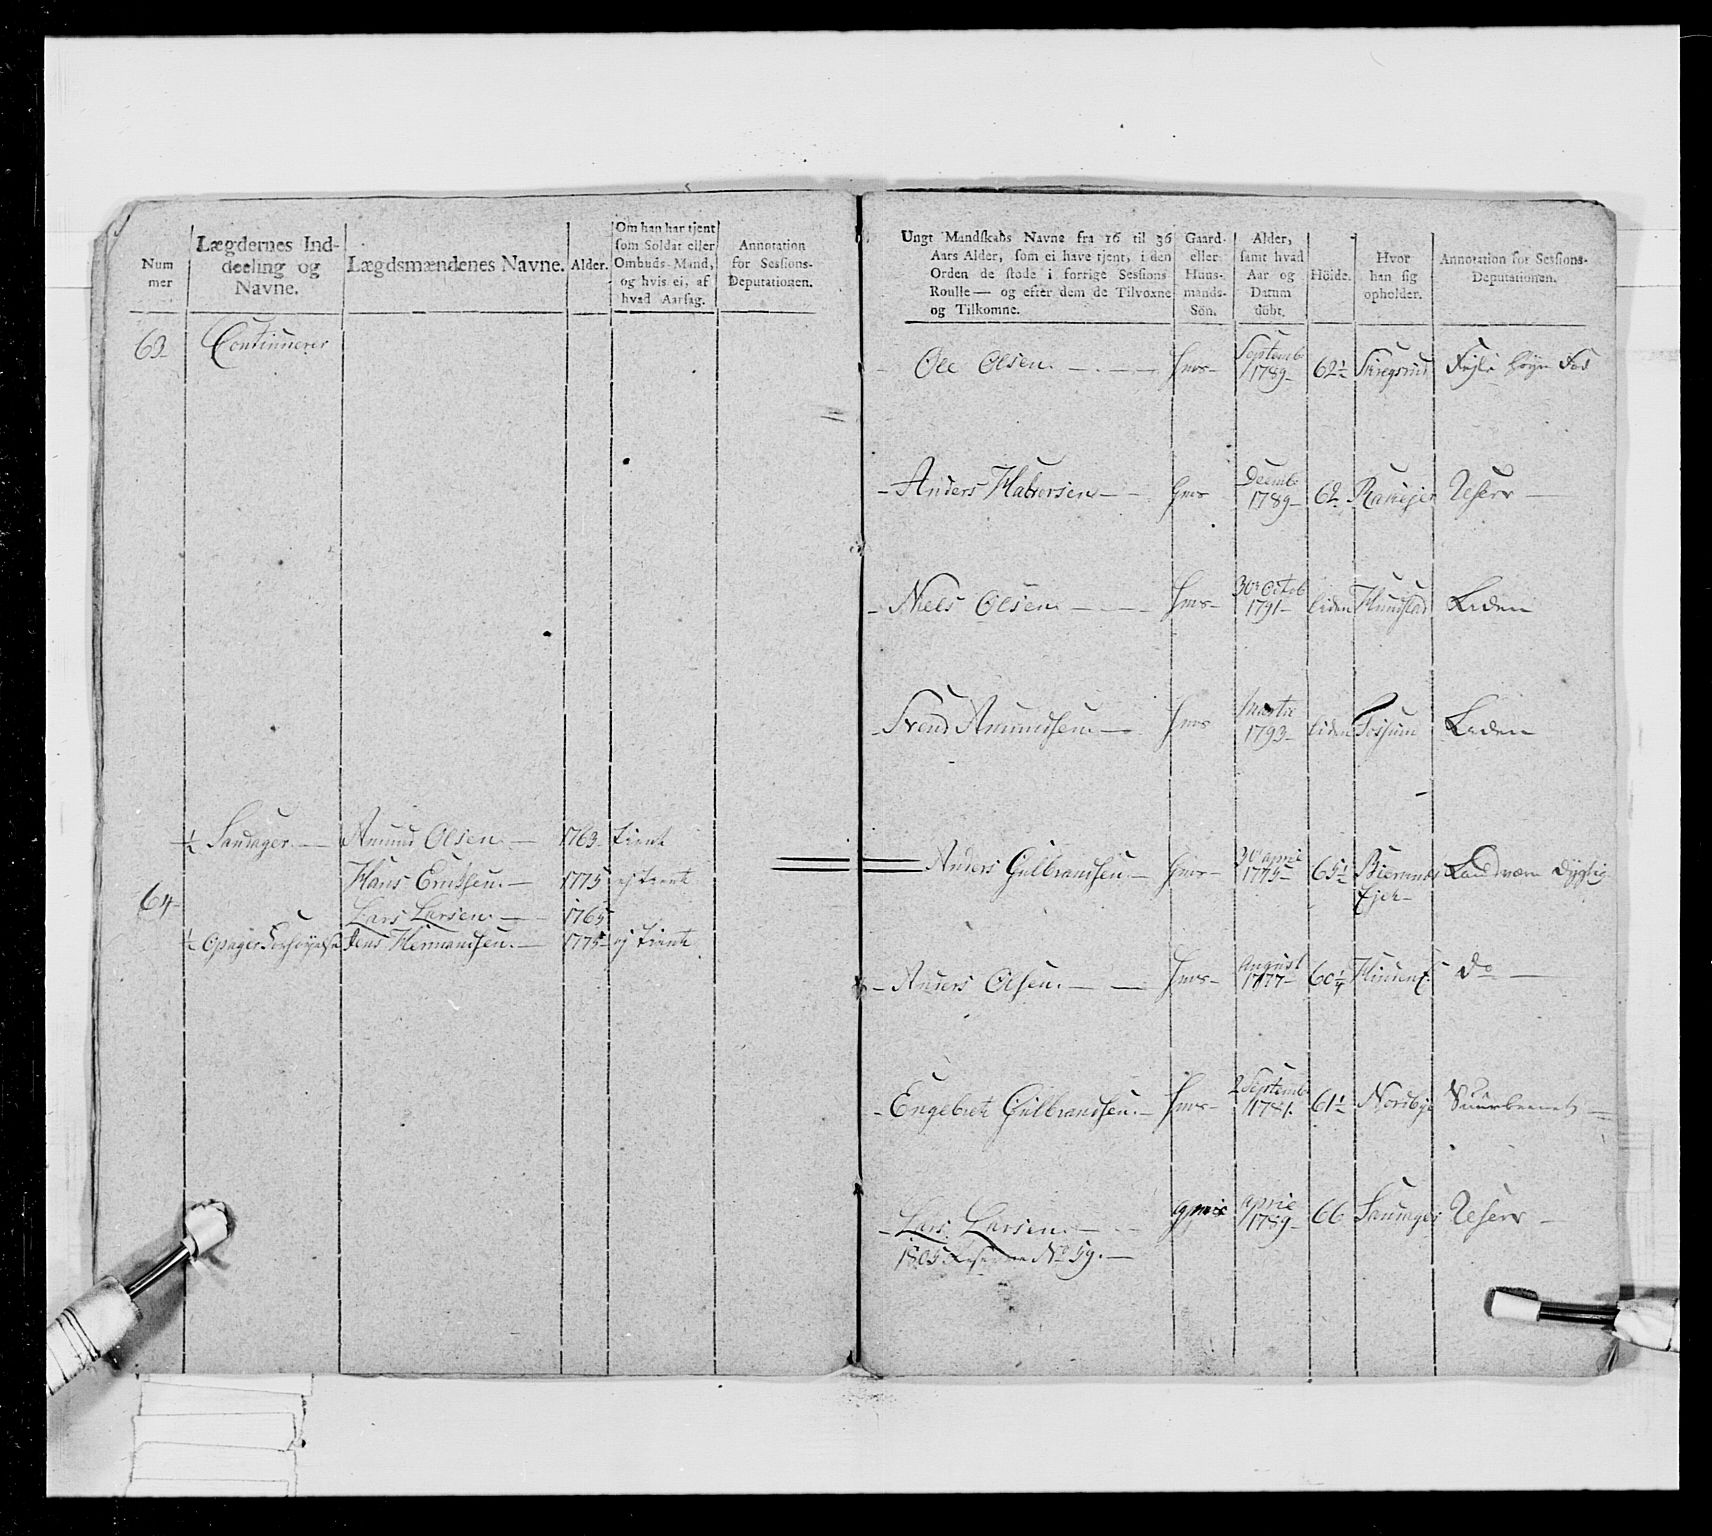 Num
mer
Lægdernes Ind-
deeling og
Navne.
Lægdsmændenes Navne.
Alder.
Om han har tjent
som Soldat eller
Ombuds-Mand,
og hvis ei, af
hvad Aarsag.
Annotation
for Sessions-
Deputationen.
63 Continuerer
½ Saurager Amund Olsen 1763 tient
Hans Erichsen 1775 ej tient
64
Lars Larsen 1765
½ Opager Jens Hermandsen 1775 ej tient
Ungt Mandskabs Navne fra 16 til 36
Aars Alder, som ei have tjent, i den
Orden de stode i forrige Sessions
Roulle— og efter dem de Tilvoxne
og Tilkomne.
Gaard-
eller
Huus-
mands-
Sön.
Alder,
samt hvad
Aar og
Datum
döbt.
Höide.
Hvor
han sig
opholder.
Annotation for Sessions-
Deputationen.
Ole Olsen Septemb 1789 62½
Anders Halvorsen Decemb 1789 62 Reserv
Niels Olsen 30 Octob 1791 liden Liden
Svend Amundsen Martii 1793 liden Fossum Liden
Anders Gulbrandsen 30 april 1775 65½ Landværn Dygtig
Ejer
Anders Olsen August 1777 60¼ do
Engebret Gulbrandsen 2 Septemb 1781 61½ Nordbye
Lars Larsen april 1789 66 Saurager Reserv
1805 No 59